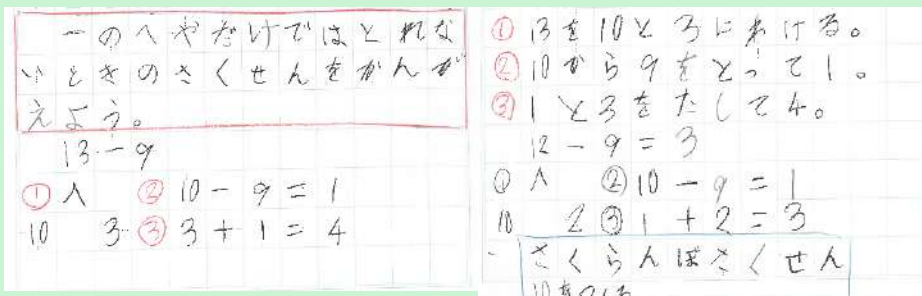 一のへやだけではとれな
いときのさくせんをかんが
えよう。
13-9
① ∧ ② 10-9=1
10 3 ③ 3+1=4
① 13を10と3にわける。
② 10から9をとって1。
③ 1と3をたして4。
12-9=3
① ∧ ② 10-9=1
10 2 ③ 1+2=3
さくらんぼさくせん